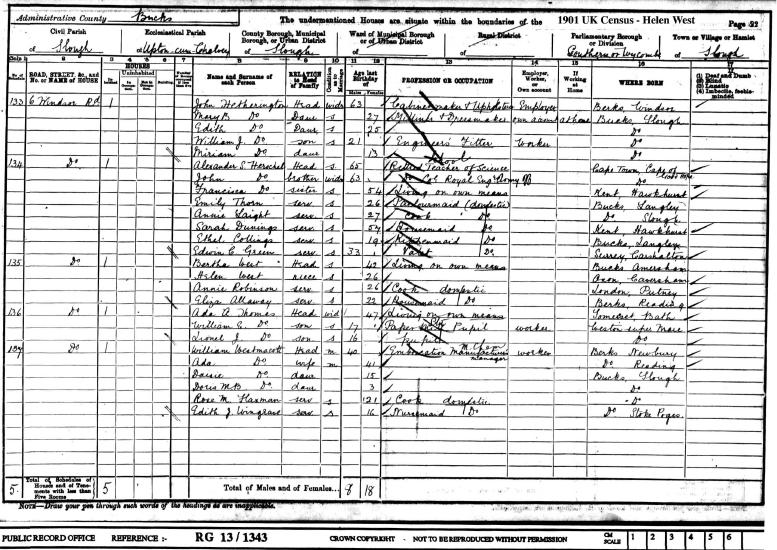 Administrative County Bucks
The undermentioned Houses are situate within the boundaries of the
1901 UK Census - Helen West
Page 22
Civil Parish
of Slough
Ecclesiastical Parish
of Upton cum Chalvey
County Borough, Municipal Borough, or Urban District
of Slough
Ward of Municipal Borough or of Urban District
of
Rural District
of
Parliamentary Borough or Division
of Southern or Wycombe
Town or Village or Hamlet
of Slough
ROAD, STREET, &c., and No. or NAME of HOUSE
HOUSES
Uninhabited
Name and Surname of each Person
RELATION to Head of Family
Age last Birthday of
Males Females
PROFESSION OR OCCUPATION
Employer, Worker, or Own account
If Working at Home
WHERE BORN
(1) Deaf and Dumb
(2) Blind
(3) Lunatic
(4) Imbecile, feeble-minded
133 6 Windsor Rd 1 John Hetherington Head widr 63 Cabinetmaker & Upholsterer Employer Berks, Windsor
Mary B Do Daur s 27 Milliner & Dressmaker own account at home Bucks, Slough
Edith Do Daur s 25 Do
William J. Do son s 21 Engineer's Fitter worker Do
Miriam Do daur 13 School Do
134 Do 1 Alexander S Herschel Head s 65 Retired Teacher of Science Cape Town, Cape of Good Hope
John Do brother widr 63 Col Royal Eng Do
Francisca Do sister s 54 Living on own means Kent, Hawkhurst
Emily Thorn serv s 26 Parlourmaid (domestic) Bucks, Langley
Annie Laight serv s 27 Cook Do Do Slough
Sarah Dunings serv s 54 Housemaid Do Kent, Hawkhurst
Ethel Collings serv s 19 Kitchenmaid Do Bucks, Langley
Edwin C Green serv s 33 Valet Do Surrey, Carshalton
135 Do 1 Bertha West Head s 42 Living on own means Bucks Amersham
Helen West niece s 26 Oxon, Caversham
Annie Robinson serv s 26 Cook domestic London, Putney
Eliza Allaway serv s 22 Housemaid Do Berks, Reading
136 Do 1 Ada A Thomas Head wid 47 Living on own means Somerset, Bath
William E. Do son s 17 Pupil worker Weston super Mare
Lionel J Do son s 16 pupil Do
137 Do 1 William Westmacott Head m 40 Embrocation Manufacturers manager worker Berks Newbury
Ada Do wife m 41 Do Reading
Daisie Do daur 15 Bucks, Slough
Doris M B Do daur 3 Do
Rose M Flaxman serv s 21 Cook domestic Do
Edith J Wingrave serv s 16 Nursemaid Do Do Stoke Poges
5 Total of Schedules of Houses and of Tenements with less than Five Rooms 5
Total of Males and of Females... 8 18
NOTE—Draw your pen through such words of the headings as are inapplicable.
PUBLIC RECORD OFFICE REFERENCE :- RG 13/1343 CROWN COPYRIGHT - NOT TO BE REPRODUCED WITHOUT PERMISSION CM SCALE 1 2 3 4 5 6